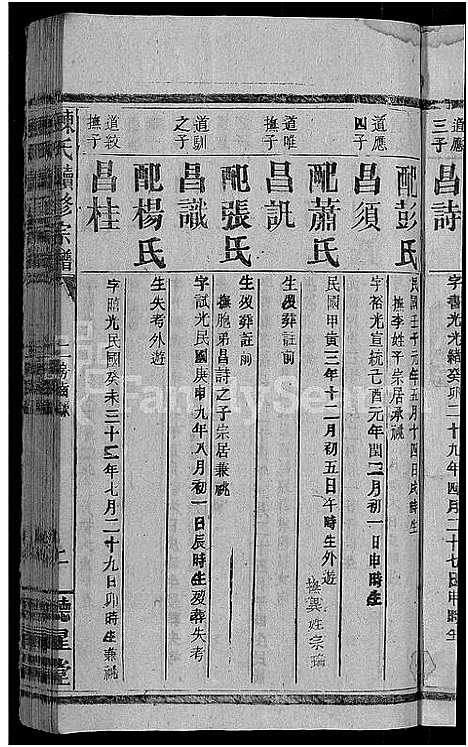 道應
三子
昌詩
字書光光緒癸卯二十九年四月二十七巳申時生
配彭氏
民國壬子元年五月十四日戌時生
撫李姓子宗居承祧
道應
四子
昌須
字裕光宣統己酉元年閏二月初一日申時生
配蕭氏
民國甲寅三年十二月初五日午時生外遊
撫異姓宗瑞
道唯
撫子
昌訊
生歿葬註前
配張氏
生歿葬註前
撫胞弟昌詩之子宗居兼祧
道訓
之子
昌識
字試光民國庚申九年八月初一日辰時生歿葬失考
配楊氏
生失考外遊
道教
撫子
昌桂
字 光民國癸未三十二年七月二十九日卯時生兼祧
陳氏續修宗譜
聽星堂
FamilySearch